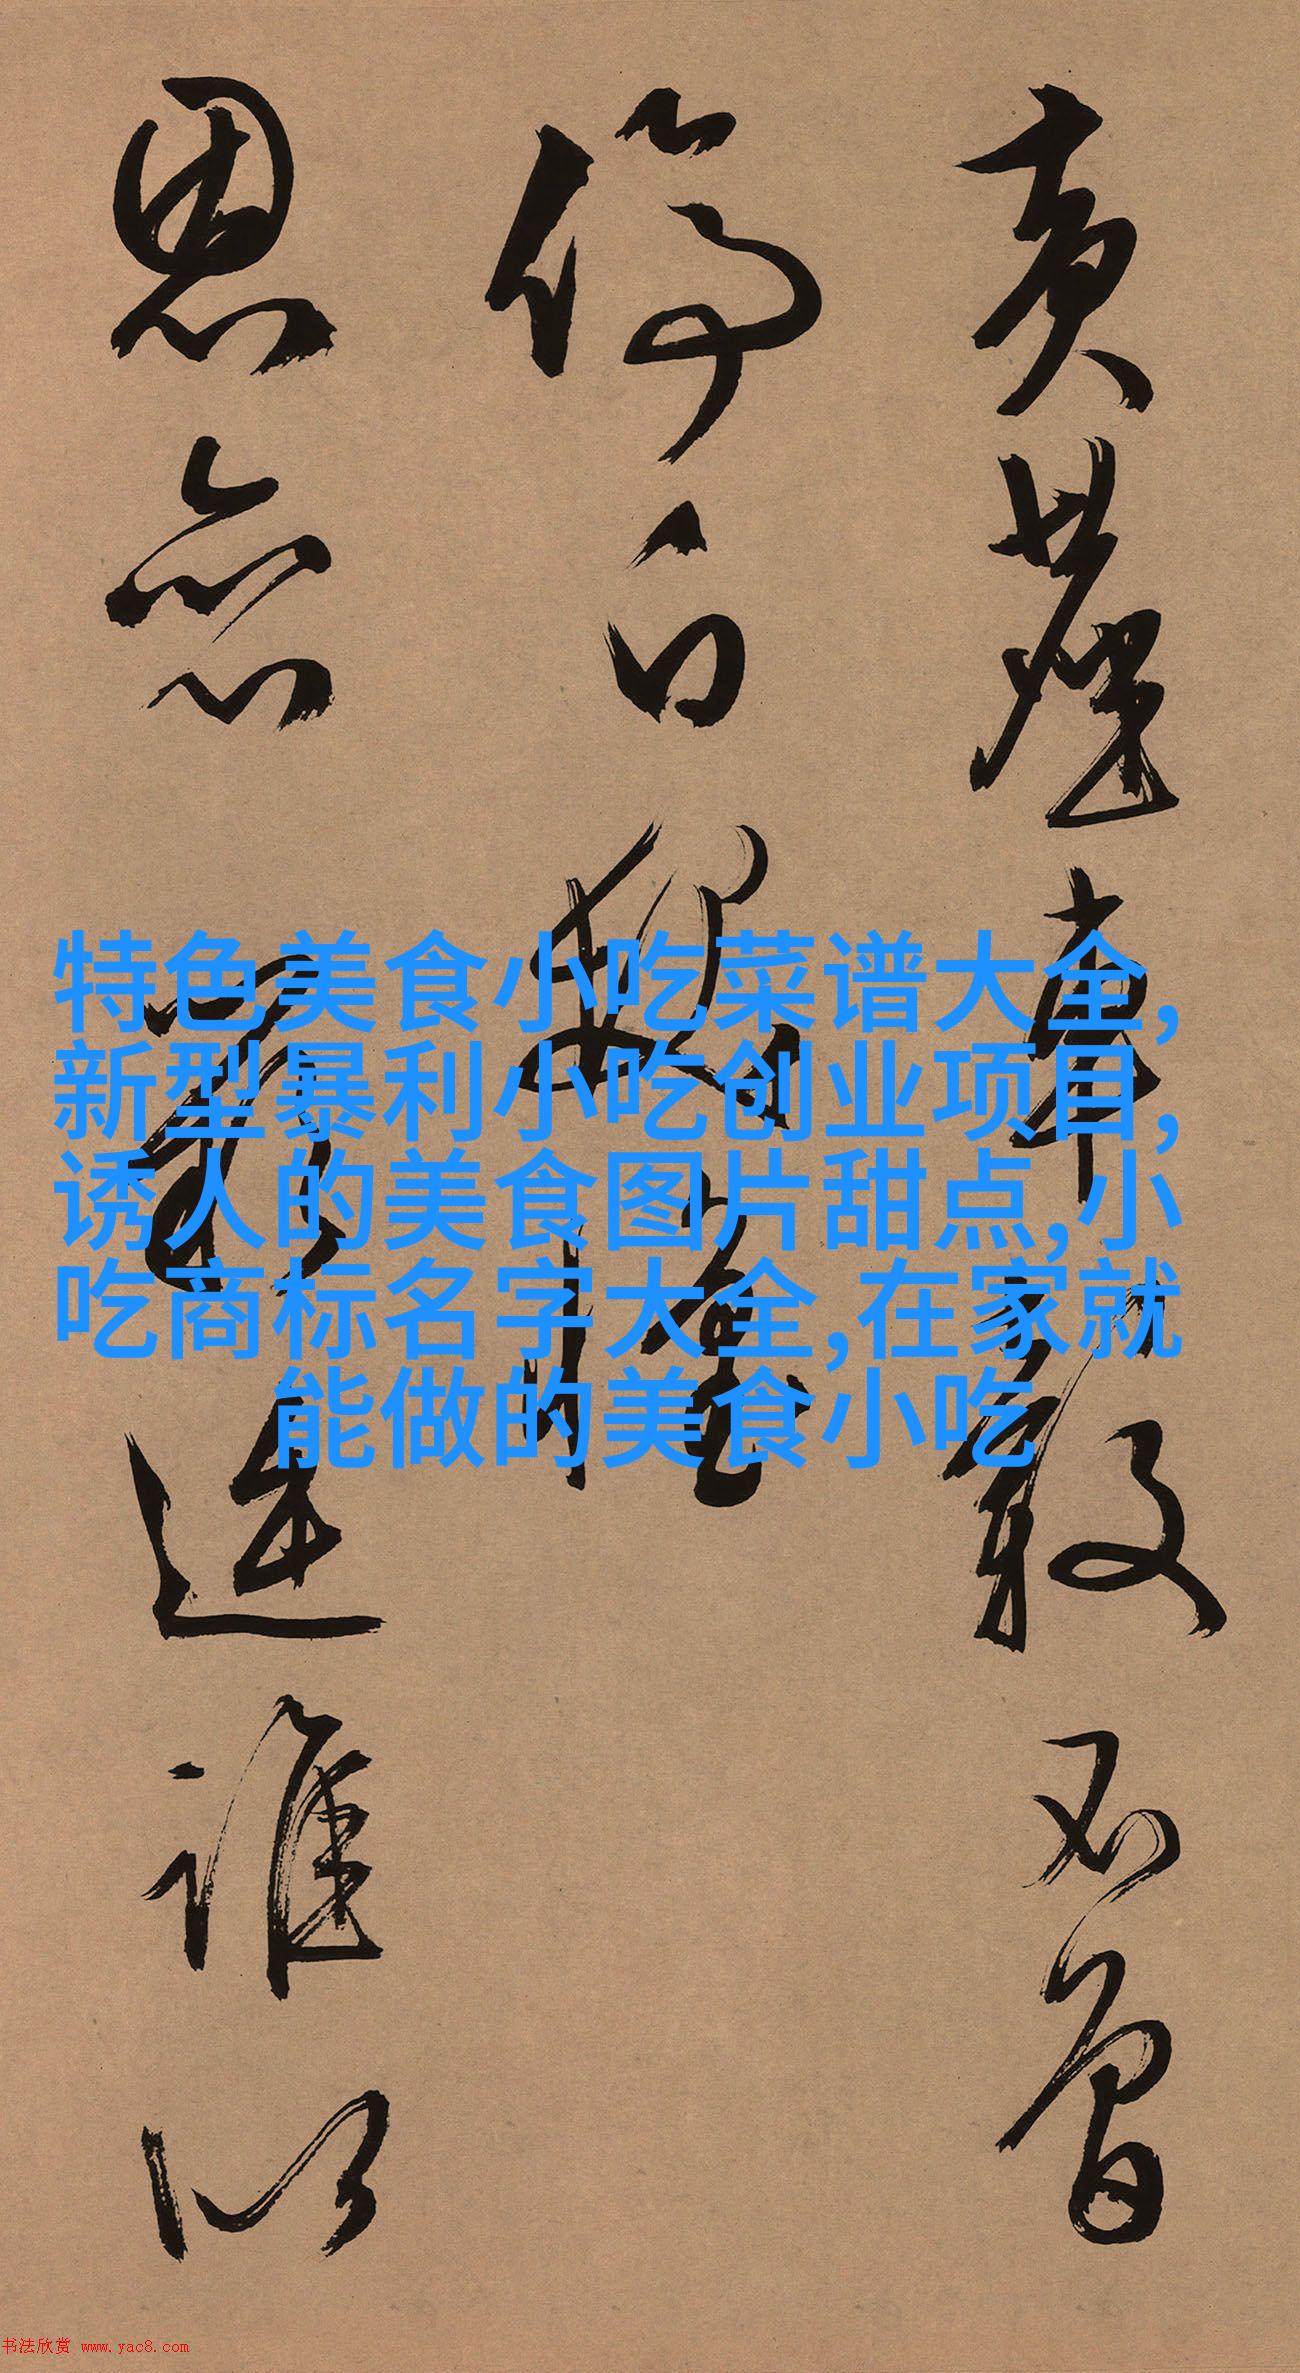 黄塵車轂不曾
停白
恩亦誰以
特色美食小吃菜谱大全,
新型暴利小吃创业项目,
诱人的美食图片甜点,小
吃商标名字大全,在家就
能做的美食小吃
书法欣赏 www.yac8.com